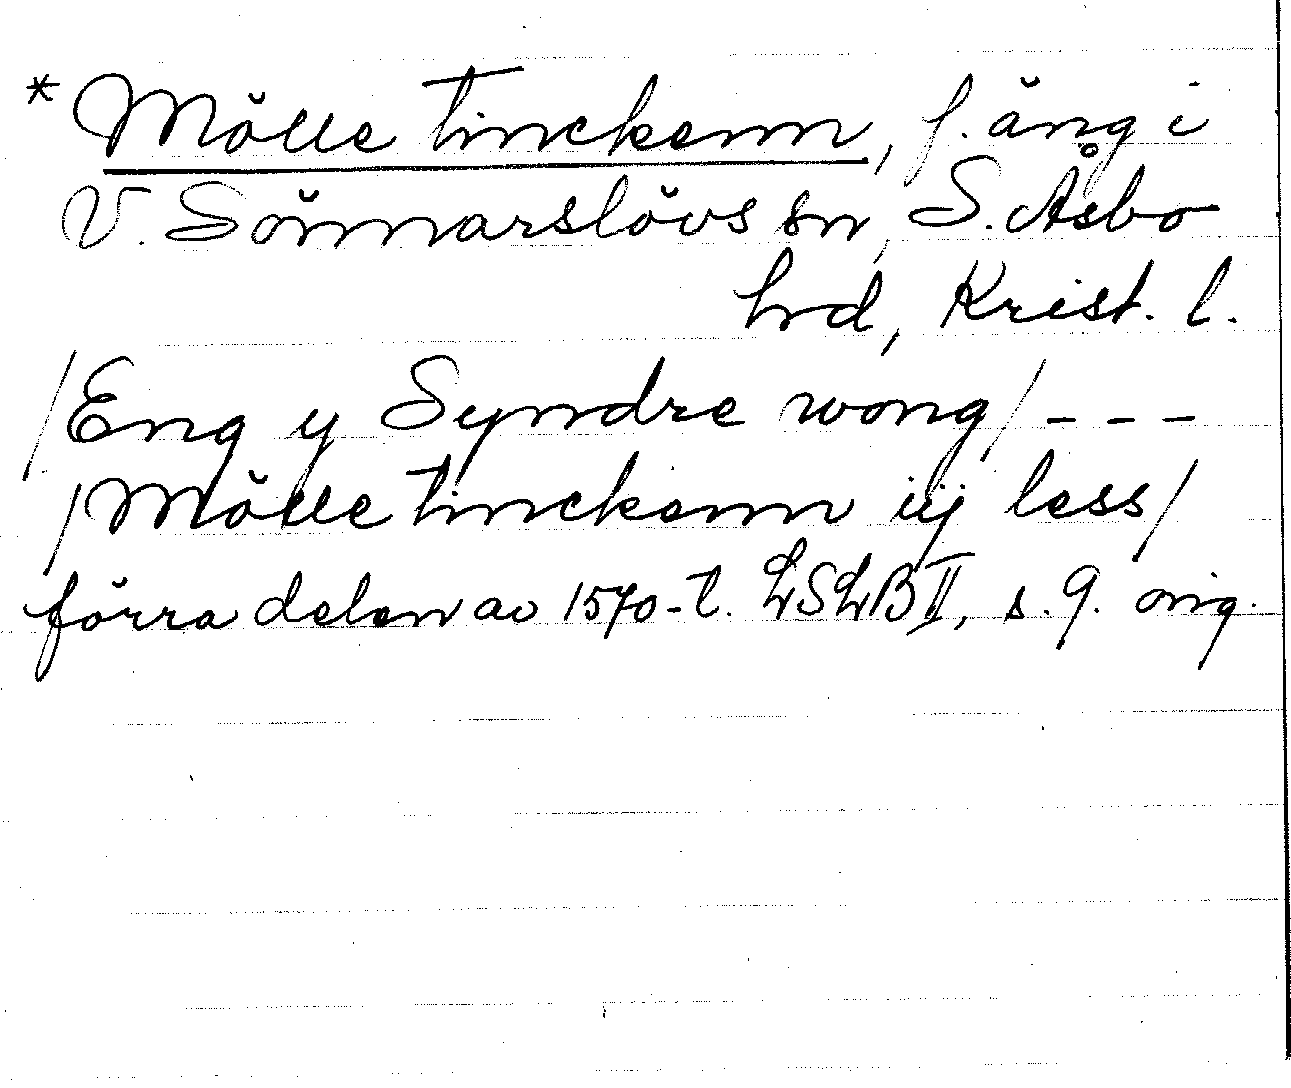 * Mölle tinckenn, f. äng i
V. Sönnarslövs sn, S. Åsbo
hd, Krist. l.
/Eng y Syndre wong/ - - -
/Mölle tinckenn iij less/
förra delen av 1570-t. LSLB II, s. 9. orig.